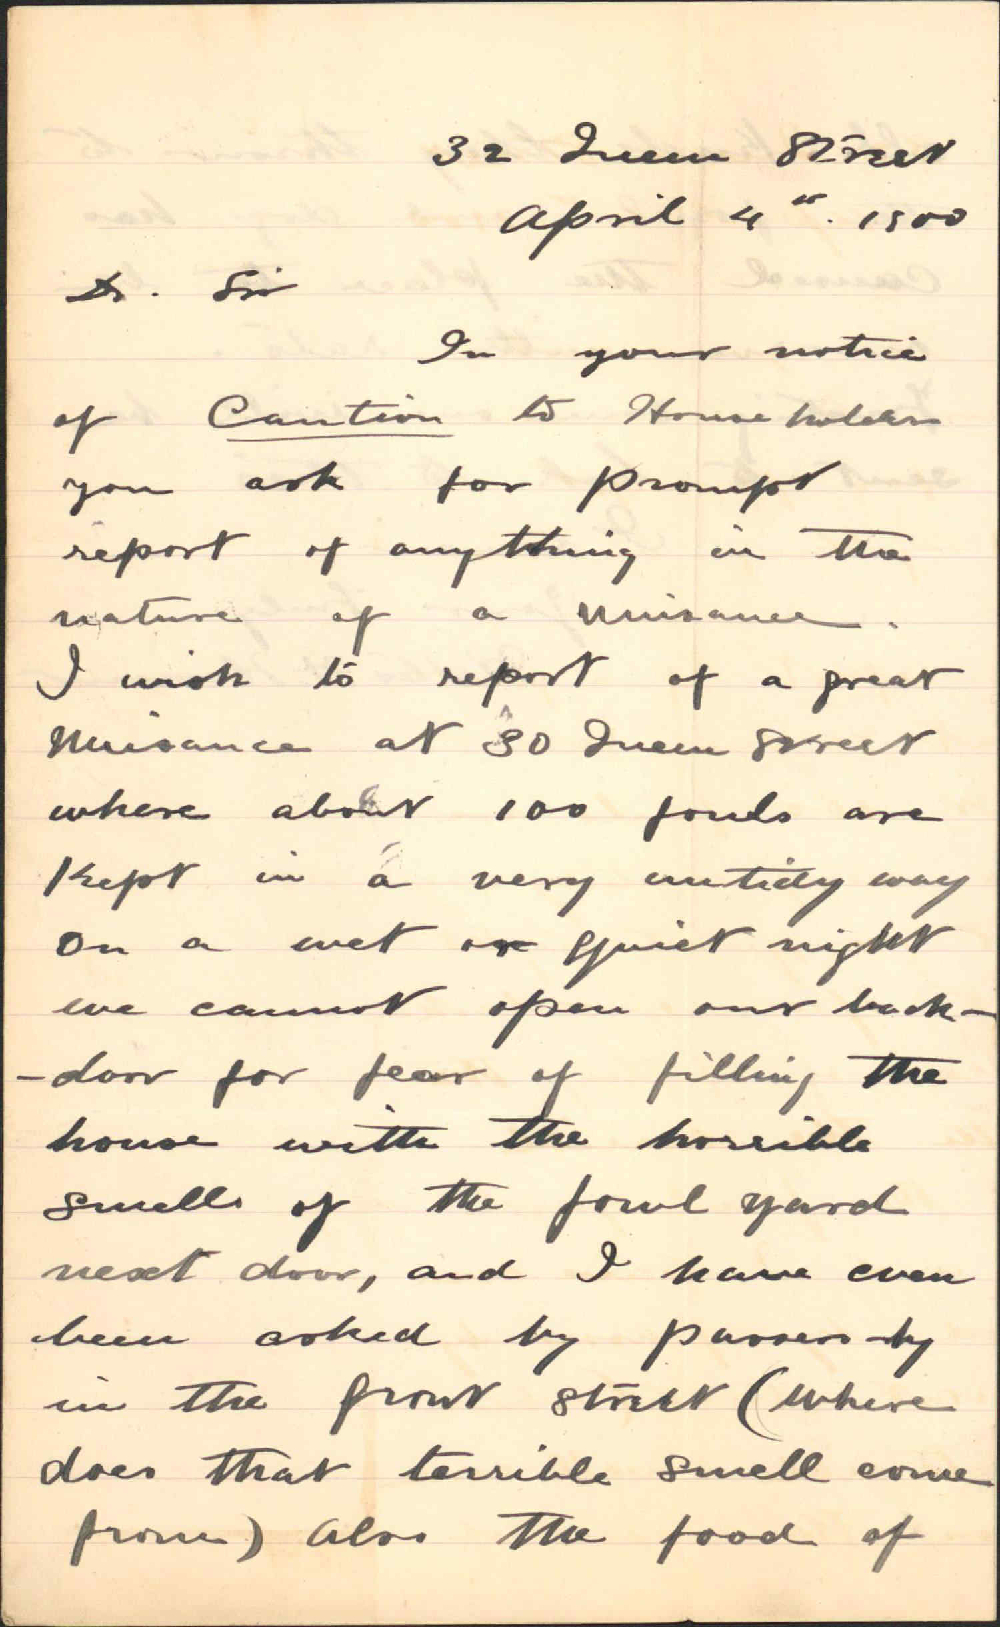 32 Queen Street
April 4th. 1900
Dr. Sir
In your notice
of Caution to House holders
you ask for prompt
report of anything in the
nature of a nuisance.
I wish to report of a great
nuisance at 30 Queen Street
where about 100 fouls are
kept in a very untidy way
on a wet or quiet night
we cannot open our back-
-door for fear of filling the
house with the horrible
smells of the fowl yard
next door, and I have even
been asked by passers-by
in the front street (where
does that terrible smell come
from) also the food of